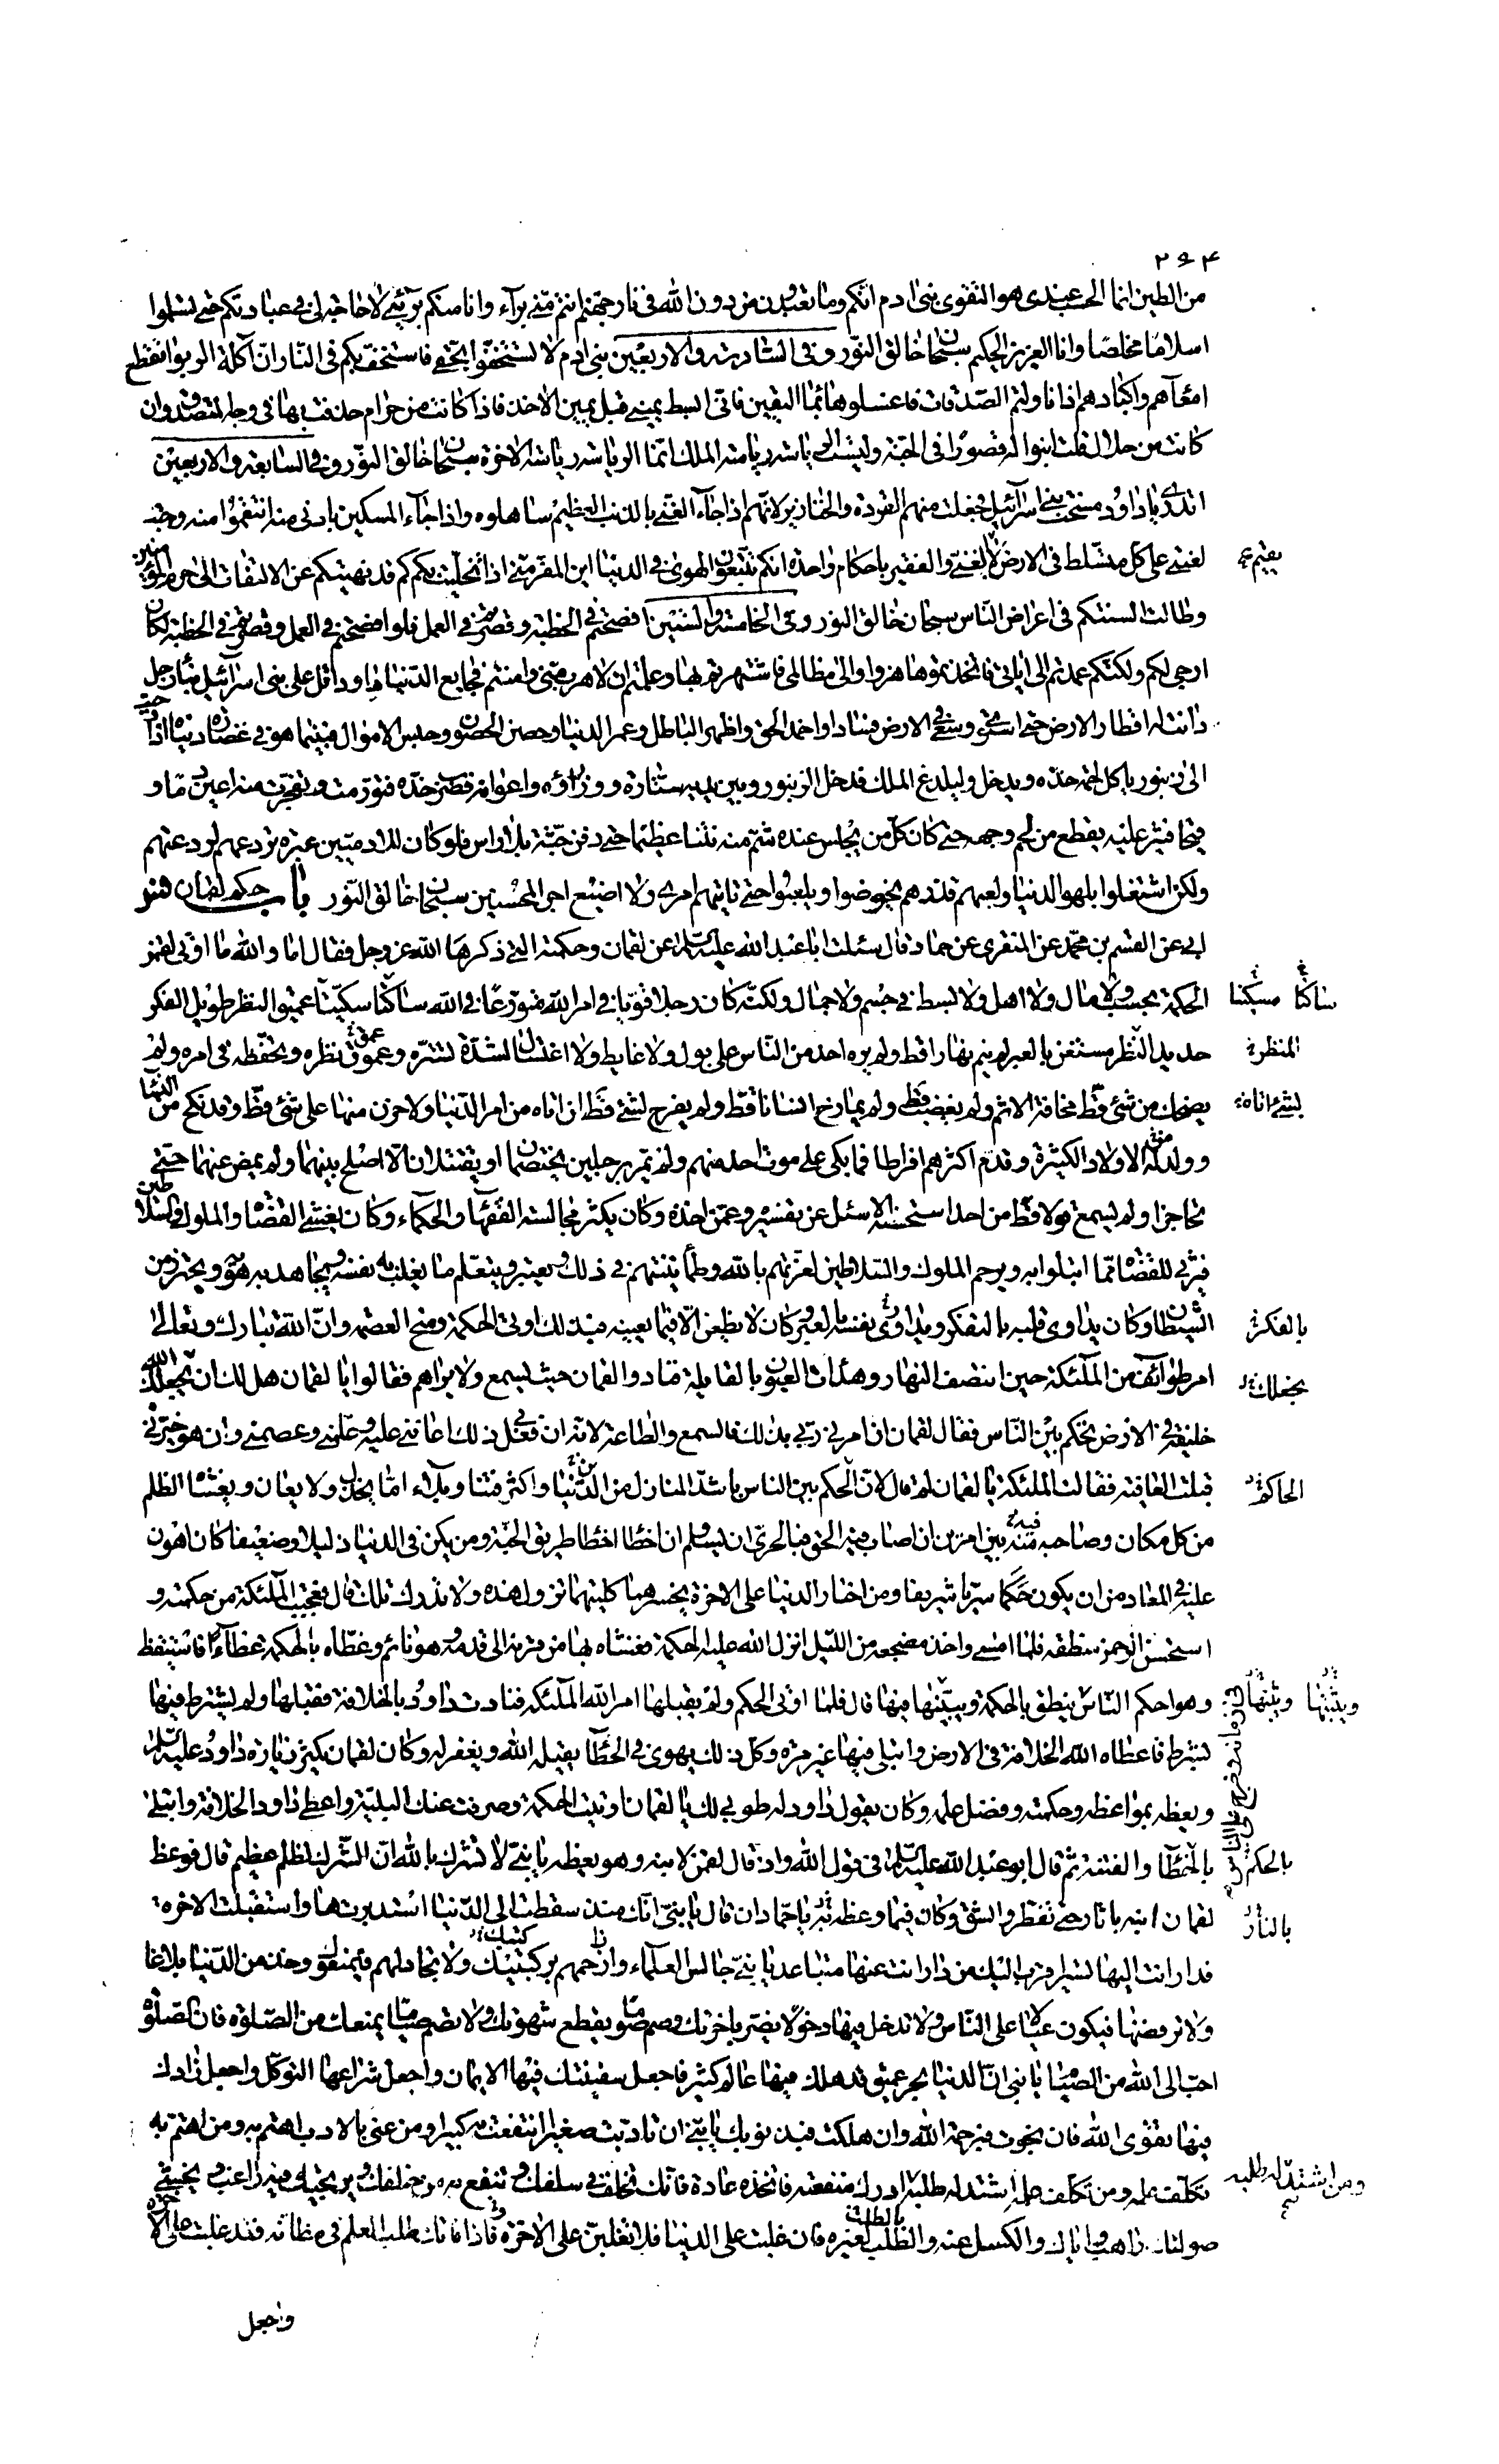 ٢٩٤
من الطين انما الحب عندى هو التقوى بنى ادم انكم وما تعبدون من دون الله فى نار جهنم انتم منى برآء وانا منكم برئ لا حاجة لى فى عبادتكم حتى تسلموا
اسلاما مخلصا وانا العزيز الحكيم سبحان خالق النور وفى السادسة والاربعين بنى ادم لا تستخفوا بحقى فاستخف بكم فى النار ان آكلة الربوا تقطع
امعآهم واكبادهم اذا ناولتم الصدقات فاغسلوها بماء اليقين فانى ابسط يمينى قبل يمين الاخذ فاذا كانت من حرام حذفت بها فى وجه المتصدق وان
كانت من حلال قلت ابنوا له قصورا فى الجنة وليست الرياسة رياسة الملك انما الرياسة رياسة الاخرة سبحان خالق النور وفى السابعة والاربعين
اتدرى يا داود لم مسخت بنى اسرآئيل فجعلت منهم القردة والخنازير لانهم اذا جآء الغنى بالذنب العظيم ساهلوه واذا جآء المسكين بادنى منه انتقموا منه وجبت
لعنتى على كل متسلط فى الارض لا يقيم الغنى والفقير باحكام واحدة انكم تتبعون الهوى فى الدنيا اين المفر منى اذا تخليت بكم كم قد نهيتكم عن الالتفات الى حرم المؤمنين
يقيم
وطالت السنتكم فى اعراض الناس سبحان خالق النور وفى الخامسة والستين افصحتم فى الخطبة وقصرتم فى العمل فلو افصحتم فى العمل وقصرتم فى الخطبة لكان
ارجى لكم ولكنكم عمدتم الى اياتى فاتخذتموها هزوا والى مظالمى فاشتهرتم بها وعلمتم ان لا هرب منى وامنتم فجايع الدنيا يا داود اتل على بنى اسرآئيل نبأ رجل
دانت له اقطار الارض حتى استوى وسعى فى الارض فسادا واخمد الحق واظهر الباطل وعمر الدنيا وحصن الحصون وحبس الاموال فبينما هو فى غضارة دنياه اذ اوحيت
الى زنبور ياكل لحمة خده ويدخل وليلدغ الملك فدخل الزنبور وبين يديه ستاره ووزراؤه واعوانه فضرب خده فتورمت وتفجرت منه اعين دما و
قيحا فثير عليه بقطع من لحم وجهه حتى كان كل من يجلس عنده شم منه نتنا عظيما حتى دفن جثة بلا راس فلو كان للادميين عبرة تردعهم لردعتهم
ولكن اشتغلوا بلهو الدنيا ولعبهم فذرهم يخوضوا ويلعبوا حتى ياتيهم امرى ولا اضيع اجر المحسنين سبحان خالق النور باب حكم لقمان فس
ابى عن القسم بن محمد عن المنقرى عن حماد قال سئلت ابا عبد الله عليه السلم عن لقمان وحكمته التى ذكرها الله عز وجل فقال اما والله ما اوتى لقمن
الحكمة بحسب ولا مال ولا اهل ولا بسط فى جسم ولا جمال ولكنه كان رجلا قويا فى امر الله متورعا فى الله ساكتا سكينا عميق النظر طويل الفكر
ساكنا مسكينا
حديد النظر مستعن بالعبر لم ينم نهارا قط ولم يره احد من الناس على بول ولا غايط ولا اغتسال لشدة تستره وعموق نظره وتحفظه فى امره ولم
يضحك من شئ قط مخافة الاثم ولم يغضب قط ولم يمازح انسانا قط ولم يفرح لشئ قط ان اتاه من امر الدنيا ولا حزن منها على شئ قط وقد نكح من النسآء
لشئ اتاه
وولد له الاولاد الكثيرة وقدم اكثرهم افراطا فما بكى على موت احد منهم ولم يمر برجلين يختصمان او يقتتلان الا اصلح بينهما ولم يمض عنهما حتى
تحاجزا ولم يسمع قولا قط من احد استحسنه الا سئل عن تفسيره وعمن اخذه وكان يكثر مجالسة الفقهآء والحكمآء وكان يغشى القضاة والملوك والسلاطين
فيرثى للقضاة مما ابتلوا به ويرحم الملوك والسلاطين لعزتهم بالله وطمأنينتهم فى ذلك ويعتبر ويتعلم ما يغلب به نفسه ويجاهد به هواه ويحترز من
الشيطان وكان يداوى قلبه بالتفكر ويداوى نفسه بالعبر وكان لا يظعن الا فيما يعينه فبذلك اوتى الحكمة ومنح العصمة وان الله تبارك وتعالى
بالفكر
امر طوائف من الملئكة حين انتصف النهار وهدات العيون بالقايلة فنادوا لقمان حيث يسمع ولا يراهم فقالوا يا لقمان هل لك ان يجعلك الله
يجعلك
خليفة فى الارض تحكم بين الناس فقال لقمان ان امرنى ربى بذلك فالسمع والطاعة لانه ان فعل بى ذلك اعاننى عليه وعلمنى وعصمنى وان هو خيرنى
قبلت العافية فقالت الملئكة يا لقمان لم قال لان الحكم بين الناس باشد المنازل من الدين واكثر فتنا وبلاء اما يخذل ولا يعان ويغشاه الظلم
الحاكم
من كل مكان وصاحبه منه بين امرين ان اصاب فيه الحق فبالحرى ان يسلم وان اخطا اخطا طريق الجنة ومن يكن فى الدنيا ذليلا وضعيفا كان اهون
عليه فى المعاد من ان يكون حكما سريا شريفا ومن اختار الدنيا على الاخرة يخسرهما كلتيهما تزول هذه ولا تدرك تلك قال فتعجبت الملئكة من حكمته و
استحسن الرحمن منطقه فلما امسى واخذ مضجعه من الليل انزل الله عليه الحكمة فغشاه بها من قرنه الى قدمه وهو نائم وغطاه بالحكمة غطآء فاستيقظ
وهو احكم الناس ينطق بالحكمة ويبينها فيها قال فلما اوتى الحكم ولم يقبلها امر الله الملئكة فنادت داود بالخلافة فقبلها ولم يشترط فيها
بشرط فاعطاه الله الخلافة فى الارض وابتلى فيها غير مرة وكل ذلك يهوى فى الخطآء يقيله الله ويغفر له وكان لقمان يكثر زيارة داود عليه السلم
ويعظه بمواعظه وحكمته وفضل علمه وكان يقول داود له طوبى لك يا لقمان اوتيت الحكمة وصرفت عنك البلية واعطى داود الخلافة وابتلى
بالخطآء والفتنة ثم قال ابو عبد الله عليه السلم فى قول الله واذ قال لقمن لابنه وهو يعظه يا بنى لا تشرك بالله ان الشرك لظلم عظيم قال فوعظ
بالحكم
لقمان ابنه باثار حتى تفطر وانشق وكان فيما وعظه به يا حماد ان قال يا بنى انك منذ سقطت الى الدنيا استدبرتها واستقبلت الاخرة
فدار انت اليها تسير اقرب اليك من دار انت عنها متباعد يا بنى جالس العلمآء وازحمهم بركبتيك ولا تجادلهم فيمنعوك وخذ من الدنيا بلاغا
ولا ترفضها فيكون عيالا على الناس ولا تدخل فيها دخولا يضر باخرتك وصم صوما يقطع شهوتك ولا تصم صياما يمنعك من الصلوة فان الصلوة
احب الى الله من الصيام يا بنى ان الدنيا بحر عميق قد هلك فيها عالم كثير فاجعل سفينتك فيها الايمان واجعل شراعها التوكل واجعل زادك
فيها تقوى الله فان نجوت فبرحمة الله وان هلكت فبذنوبك يا بنى ان تادبت صغيرا انتفعت به كبيرا ومن عنى بالادب اهتم به ومن اهتم به
تكلف علمه ومن تكلف علمه اشتد له طلبه ادرك منفعته فاتخذه عادة فانك تخلف فى سلفك وتنفع به من خلفك ويرتجيك فيه راغب ويخشى
ومن اشتد له طلبه
صولتك راهب واياك والكسل عنه والطلب لغيره فان غلبت على الدنيا فلا تغلبن على الاخرة فاذا فاتك طلب العلم فى مظانه فقد غلبت على الاخرة
واجعل